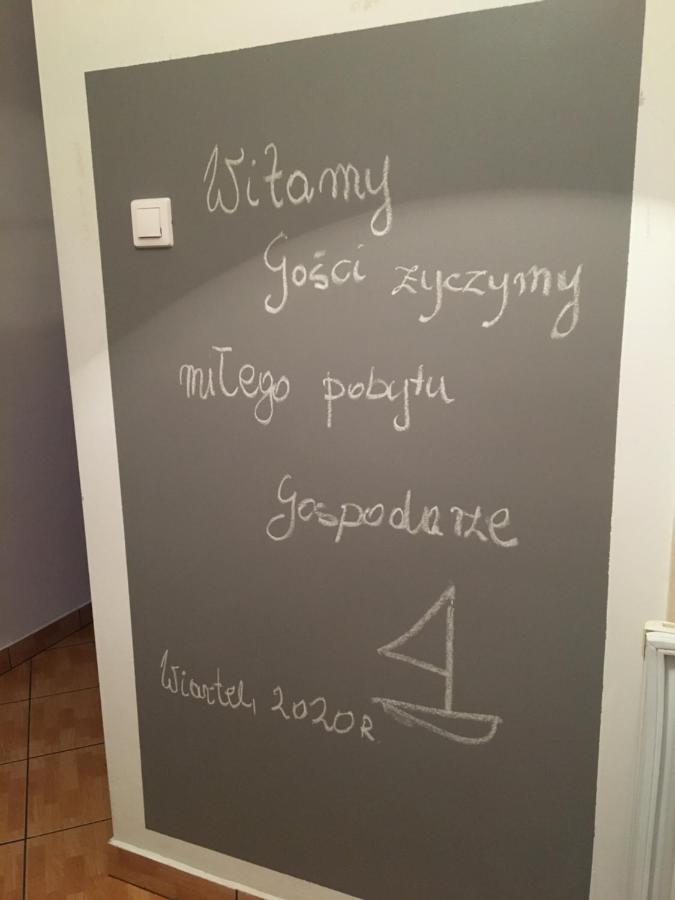 Witamy
Gości życzymy
miłego pobytu
Gospodarze
Wiartel, 2020R